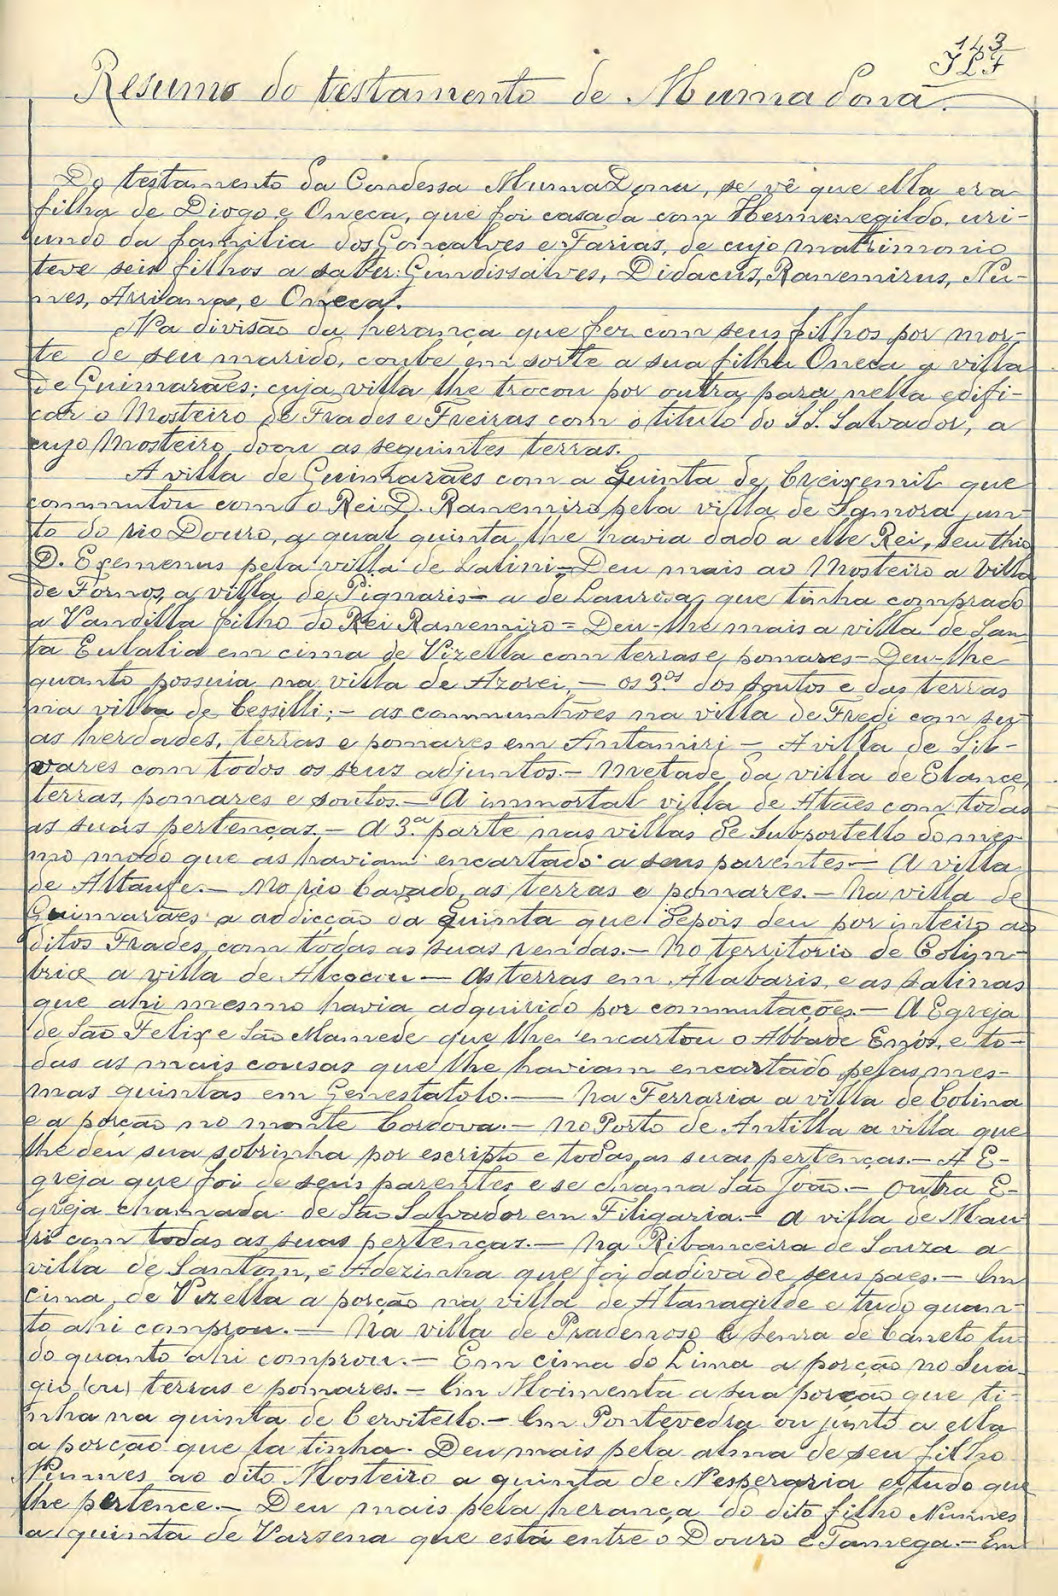 143
Resumo do testamento de Mumadona.
Do testamento da Condessa MumaDona, se vê que ella era
filha de Diogo e Oneca, que foi casada com Hermenegildo, ori-
undo da familia dos Gonçalves e Farias, de cujo matrimonio
teve seis filhos a saber: Gundissalves, Didacus, Ranemirus, Nu-
nes, Arriana, e Oneca.
Na divisão da herança que fez com seus filhos por mor-
te de seu marido, coube em sorte a sua filha Oneca a villa
de Guimarães; cuja villa lhe trocou por outra para nella edifi-
car o Mosteiro de Frades e Freiras com o titulo do SS. Salvador, a
cujo Mosteiro doou as seguintes terras.
A villa de Guimarães com a Quinta de Creixemil que
commutou com o Rei D. Ranemiro pela villa de Tamora jun-
to do rio Douro, a qual quinta lhe havia dado a elle Rei, seu thio
D. Exemenus pela villa de Latini = Deu mais ao Mosteiro a Villa
de Fornos, a villa de Pignaris - a de Laurosa, que tinha comprado
a Vandilla filho do Rei Ranemiro = Deu-lhe mais a villa de San-
ta Eulalia em cima de Vizella com terras e pomares - Deu-lhe
quanto possuia na villa de Azorei, - os 3.os dos soutos e das terras
na villa de Cessilli; - as commutações na villa de Fredi com su-
as herdades, terras e pomares em Antamiri - A villa de Sil-
vares com todos os seus adjuntos. - Metade da villa de Elance,
terras, pomares e soutos. - A immortal villa de Atães com todas
as suas pertenças. - A 3.a parte nas villas de Subportello do mes-
mo modo que as haviam encartado a seus parentes - A villa
de Attauxe. - No rio Cavado, as terras e pomares. - Na villa de
Guimarães a addicção da Quinta que depois deu por inteiro aos
ditos Frades, com todas as suas rendas. - No territorio de Colim-
brie a villa de Alcocou - As terras em Alabaris, e as salinas
que ahi mesmo havia adquirido por commutações. - A Egreja
de São Felix e São Mamede que lhe encartou o Abbade Enjos, e to-
das as mais cousas que lhe haviam encartado pelas mes-
mas quintas em Genestatolo. - Na Ferraria a villa de Colina
e a porção no monte Cordova. - No Porto de Antilla a villa que
lhe deu sua sobrinha por escripto e todas as suas pertenças. - A E-
greja que foi de seus parentes e se chama São João. - Outra E-
greja chamada de São Salvador em Filigaria. - A villa de Mau-
ri com todas as suas pertenças. - Na Ribanceira de Souza a
villa de Santom, e Adezinha que foi dadiva de seus paes. - Em
cima de Vizella a porção na villa de Atanagilde e tudo quan-
to ahi comprou. - Na villa de Prademoso e Senra de Caneto tu-
do quanto ahi comprou. - Em cima do Lima a porção no Sua-
gio (ou) terras e pomares. - Em Moimenta a sua porção que ti-
nha na quinta de Cervitello. - Em Pontevedra ou junto a ella
a porção que la tinha. Deu mais pela alma de seu filho
Nunnes ao dito Mosteiro a quinta de Nesperaria e tudo que
lhe pertence. - Deu mais pela herança do dito filho Nunnes
a quinta de Varzena que está entre o Douro e Tamega. - Em